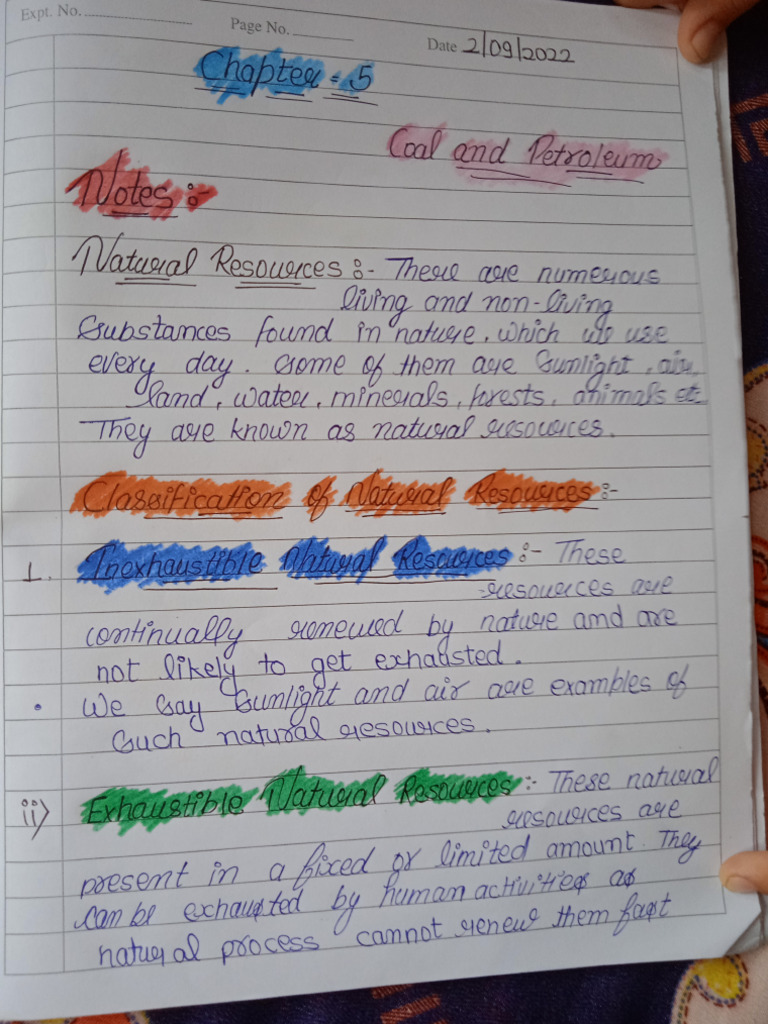 Expt. No.
Page No.
Date 2/09/2022
Chapter - 5
Coal and Petroleum
Notes :-
Natural Resources :- There are numerous
living and non-living
substances found in nature, which we use
every day. Some of them are Sunlight, air,
land, water, minerals, forests, animals etc
They are known as natural resources.
Classification of Natural Resources :-
1. Inexhaustible Natural Resources :- These
resources are
continually renewed by nature and are
not likely to get exhausted.
• We say Sunlight and air are examples of
such natural resources.
ii) Exhaustible Natural Resources :- These natural
resources are
present in a fixed or limited amount. They
can be exhausted by human activities as
natural process cannot renew them fast